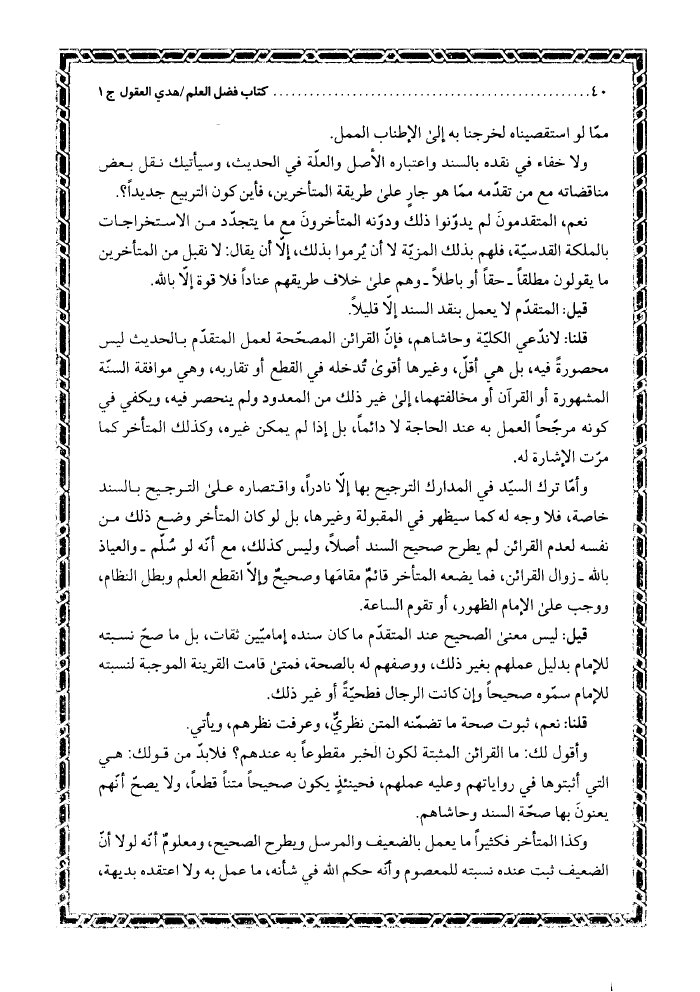 ٤٠ ............................................... كتاب فضل العلم/هدي العقول ج ١
ممّا لو استقصيناه لخرجنا به إلىٰ الإطناب الممل.
ولا خفاء في نقده بالسند واعتباره الأصل والعلّة في الحديث، وسيأتيك نـقل بـعض
مناقضاته مع من تقدّمه ممّا هو جارٍ علىٰ طريقة المتأخرين، فأين كون التربيع جديداً؟.
نعم، المتقدمونَ لم يدوّنوا ذلك ودوّنه المتأخرونَ مع ما يتجدّد مـن الاسـتخراجـات
بالملكة القدسيّة، فلهم بذلك المزيّة لا أن يُرموا بذلك، إلّا أن يقال: لا نقبل من المتأخرين
ما يقولون مطلقاً ـ حقاً أو باطلاً ـ وهم علىٰ خلاف طريقهم عناداً فلا قوة إلّا بالله.
قيل: المتقدّم لا يعمل بنقد السند إلّا قليلاً.
قلنا: لاندّعي الكليّة وحاشاهم، فإنّ القرائن المصحّحة لعمل المتقدّم بـالحديث ليس
محصورةً فيه، بل هي أقلّ، وغيرها أقوىٰ تُدخله في القطع أو تقاربه، وهي موافقة السنّة
المشهورة أو القرآن أو مخالفتهما، إلىٰ غير ذلك من المعدود ولم ينحصر فيه، ويكفي في
كونه مرجّحاً العمل به عند الحاجة لا دائماً، بل إذا لم يمكن غيره، وكذلك المتأخر كما
مرّت الإشارة له.
وأمّا ترك السيّد في المدارك الترجيح بها إلّا نادراً، واقـتصاره عـلىٰ التـرجـيح بـالسند
خاصة، فلا وجه له كما سيظهر في المقبولة وغيرها، بل لو كان المتأخر وضع ذلك مـن
نفسه لعدم القرائن لم يطرح صحيح السند أصلاً، وليس كذلك، مع أنّه لو سُلّم ـ والعياذ
بالله ـ زوال القرائن، فما يضعه المتأخر قائمٌ مقامَها وصحيحٌ وإلّا انقطع العلم وبطل النظام،
ووجب علىٰ الإمام الظهور، أو تقوم الساعة.
قيل: ليس معنىٰ الصحيح عند المتقدّم ما كان سنده إماميّين ثقات، بل ما صحّ نسـبته
للإمام بدليل عملهم بغير ذلك، ووصفهم له بالصحة، فمتىٰ قامت القرينة الموجبة لنسبته
للإمام سمّوه صحيحاً وإن كانت الرجال فطحيّةً أو غير ذلك.
قلنا: نعم، ثبوت صحة ما تضمّنه المتن نظريٌّ، وعرفت نظرهم، ويأتي.
وأقول لك: ما القرائن المثبتة لكون الخبر مقطوعاً به عندهم؟ فلابدّ من قـولك: هـي
التي أثبتوها في رواياتهم وعليه عملهم، فحينئذٍ يكون صحيحاً متناً قطعاً، ولا يصحّ أنّهم
يعنونَ بها صحّة السند وحاشاهم.
وكذا المتأخر فكثيراً ما يعمل بالضعيف والمرسل ويطرح الصحيح، ومعلومٌ أنّه لولا أنّ
الضعيف ثبت عنده نسبته للمعصوم وأنّه حكم الله في شأنه، ما عمل به ولا اعتقده بديهة،